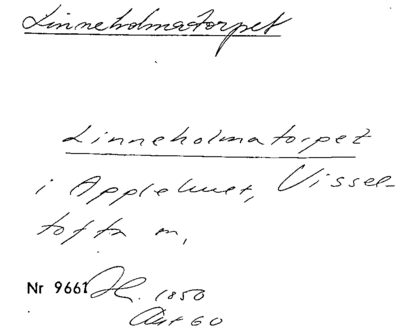 Linneholmatorpet
Linneholmatorpet
i Applehult, Vissel-
tofta
Nr 9661
1850
60